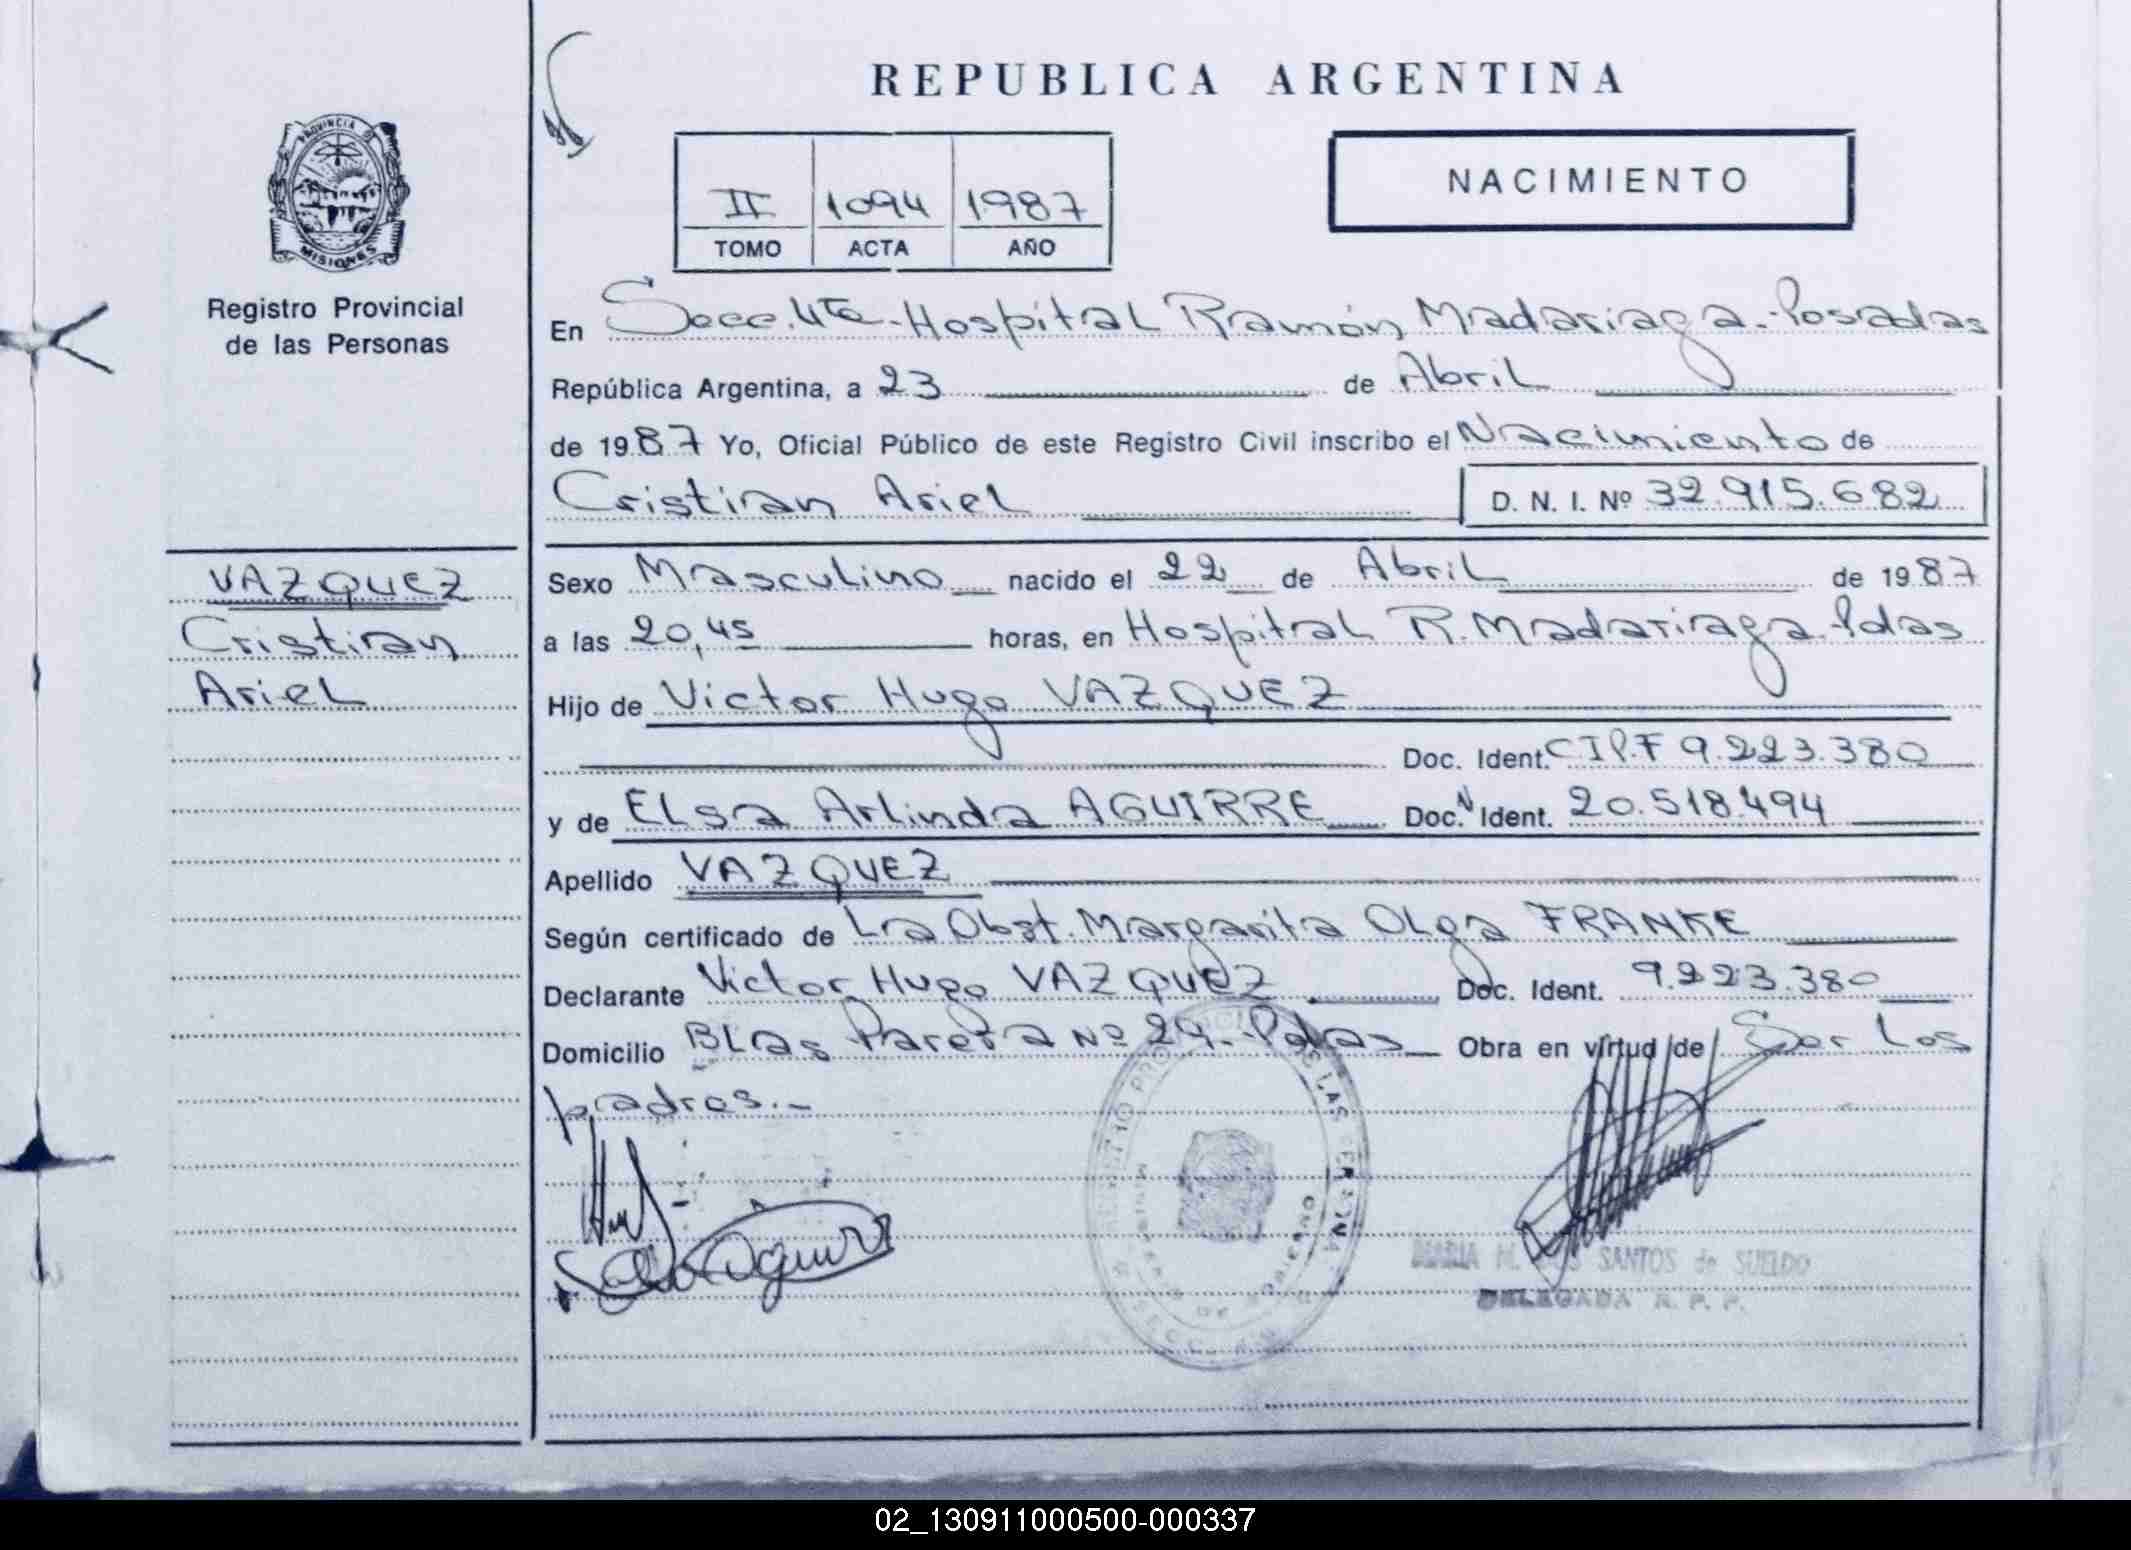 REPUBLICA ARGENTINA
PROVINCIA DE
MISIONES
Registro Provincial
de las Personas
II 1094 1987
TOMO ACTA AÑO
NACIMIENTO
En Secc. 4ta. Hospital Ramón Madariaga - Posadas
República Argentina, a 23 de Abril
de 1987 Yo, Oficial Público de este Registro Civil inscribo el Nacimiento de
Cristian Ariel D. N. I. Nº 32.915.682
VAZQUEZ
Cristian
Ariel
Sexo Masculino nacido el 22 de Abril de 1987
a las 20,45 horas, en Hospital R. Madariaga. Pdas
Hijo de Victor Hugo VAZQUEZ
Doc. Ident. CIPF 9.223.380
y de ELsa Arlinda AGUIRRE Doc.N Ident. 20.518.494
Apellido VAZQUEZ
Según certificado de La Obst. Margarita Olga FRANKE
Declarante Victor Hugo VAZQUEZ Doc. Ident. 9.223.380
Domicilio BLas Parera Nº 29 - Pdas Obra en virtud de Ser Los
padres.-
REGISTRO PROVINCIAL DE LAS PERSONAS
MINISTERIO DE GOBIERNO
MARIA M. DOS SANTOS de SUELDO
DELEGADA R. P. P.
02_130911000500-000337